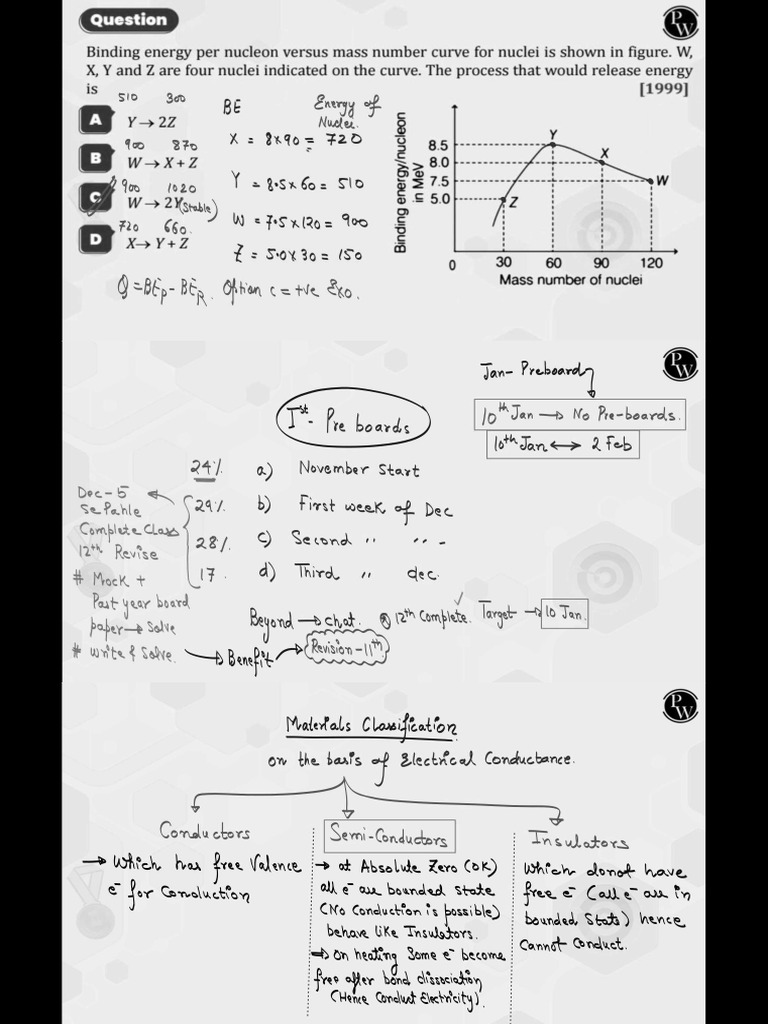 Question
PW
Binding energy per nucleon versus mass number curve for nuclei is shown in figure. W,
X, Y and Z are four nuclei indicated on the curve. The process that would release energy
is [1999]
510 300
A Y → 2Z
900 870
B W → X + Z
900 1020
C W → 2Y (Stable)
720 660
D X → Y + Z
BE Energy of
Nuclei
X = 8x90 = 720
Y = 8.5x60 = 510
W = 7.5x120 = 900
Z = 5.0x30 = 150
Q = BEp - BER. Option c = +ve Exo.
Binding energy/nucleon
in MeV
8.5
8.0
7.5
5.0
Y
X
W
Z
0 30 60 90 120
Mass number of nuclei
PW
Jan- Preboard
10th Jan → No Pre-boards.
10th Jan ↔ 2 Feb
Ist - Pre boards
24% a) November Start
29% b) First week of Dec
28% c) Second " " -
17 d) Third " dec.
Dec-5
Se Pahle
Complete Class
12th Revise
# Mock +
Past year board
paper → Solve
# write & Solve.
→ Benefit → Revision-11th
Beyond → chat. 12th Complete. Target → 10 Jan.
PW
Materials Classification
on the basis of Electrical Conductance.
Conductors
→ Which has free Valence
e- for Conduction
Semi-Conductors
→ at Absolute Zero (0K)
all e- are bounded state
(No Conduction is possible)
behave like Insulators.
→ On heating Some e- become
free after bond dissociation
(Hence Conduct Electricity).
Insulators
Which donot have
free e- (all e- are in
bounded State) hence
Cannot Conduct.